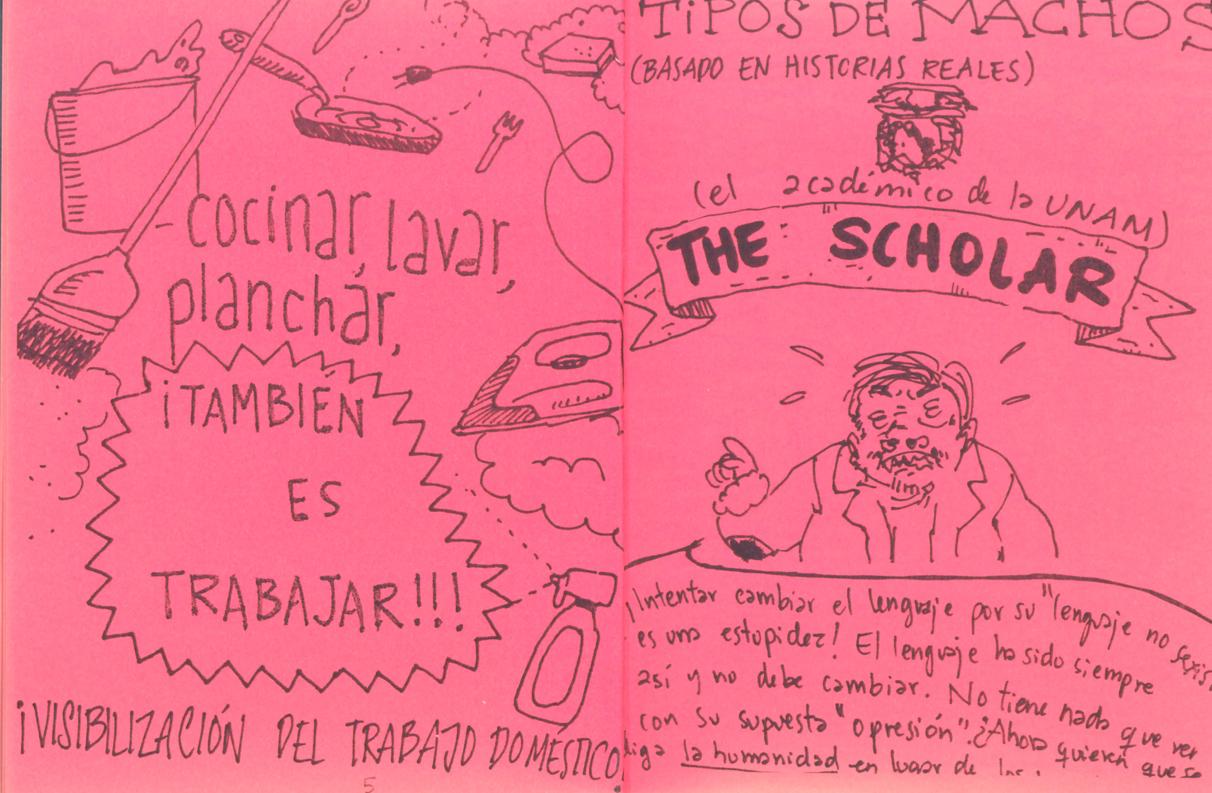 -cocinar, lavar,
planchar,
¡TAMBIÉN
ES
TRABAJAR!!!
¡VISIBILIZACIÓN DEL TRABAJO DOMÉSTICO
5
TiPOS DE MACHOS
(BASADO EN HISTORIAS REALES)
(el académico de la UNAM)
THE SCHOLAR
¡Intentar cambiar el lenguaje por su "lenguaje no sexis
es una estupidez! El lenguaje ha sido siempre
así y no debe cambiar. No tiene nada que ver
con su supuesta "opresión". ¿Ahora quieren que se
diga la humanidad en lugar de